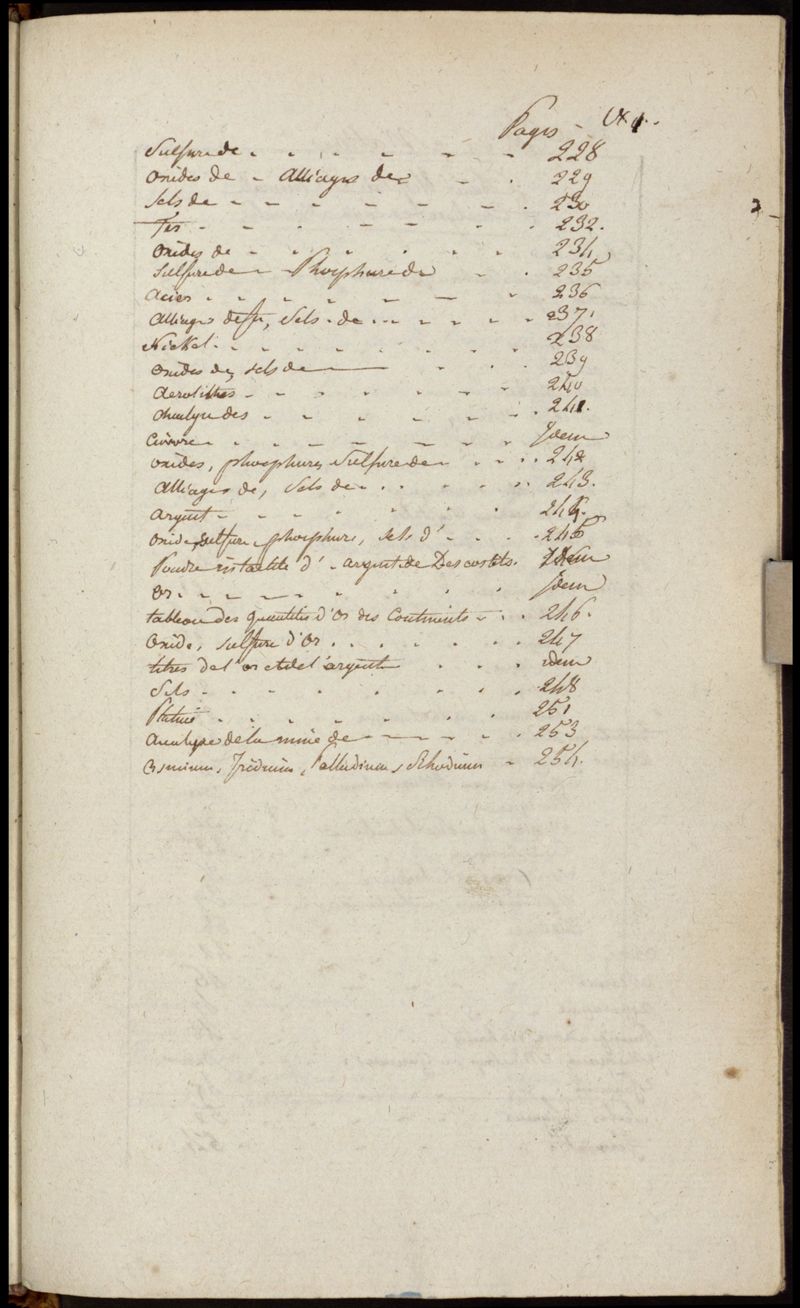 Pages
Sulfure de - - - - - - 228
Oxides de - Alliages de - . 229
Sels de - - - - - - . 230
Fer - - . - - - . 232.
Oxides de - - . . . . 234
Sulfure de - Phosphure de - . 235
Acier . . . . - - . 236
Alliages de fer, Sels de . . . - - - - 237
Nickel . . . . . . . 238
Oxides de, sels de - . . 239
Aerolithes - - . . . . - 240
Analyse des . . . . . - . 241.
Cuivre . . . - - - - . Idem
Oxides, phosphure, Sulfure de - . . . 242
Alliages de, Sels de . . . . . . 243.
Argent - . . . . . . 244.
Oxide, sulfure, phosphure, sels d' - . . . 245
Poudre d'argent de Descostils. Idem
Or . - - - . . . . Idem
tableau des quantités d'Or des Continents - . . 246.
Oxide, sulfure d'Or . . . . . . . 247
titres de l'or et de l'argent . . . idem
Sels - . . . . . . . 248
Platine . . . . . . . 251
Analyse de la mine de - - - - . . 253
Osmium, Iridium, Palladium, Rhodium - 254.